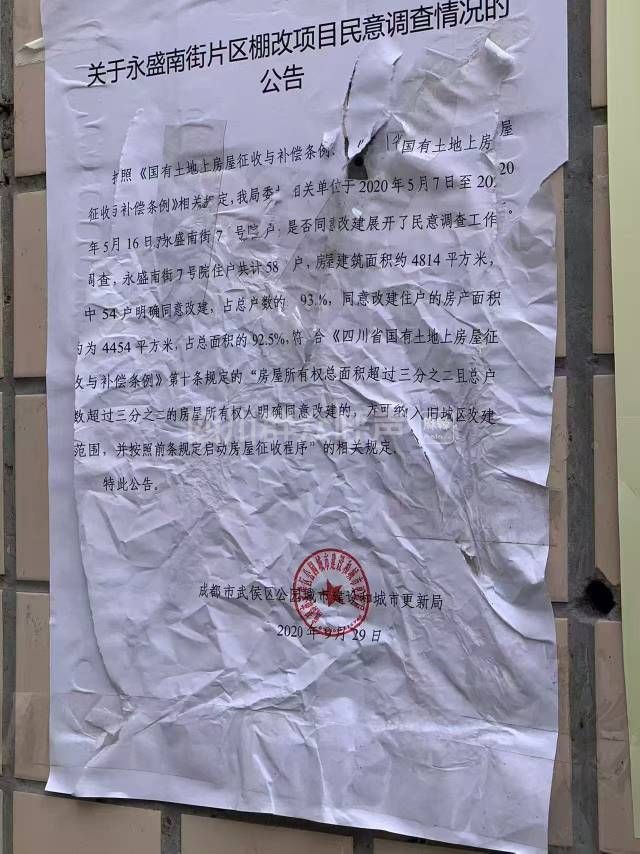 关于永盛南街片区棚改项目民意调查情况的
公告
照《国有土地上房屋征收与补偿条例、 国有土地上房屋
征收与补偿条例》相关规定,我局委 相关单位于2020年5月7日至2020
年5月16日对永盛南街7号院 户,是否同意改建展开了民意调查工作。
调查,永盛南街7号院住户共计58 户,房屋建筑面积约4814平方米,
中54户明确同意改建,占总户数的 93.%,同意改建住户的房产面积
约为4454平方米,占总面积的92.5%,符 合《四川省国有土地上房屋征
收与补偿条例》第十条规定的“房屋所有权总面积超过三分之二且总户
数超过三分之二的房屋所有权人明确同意改建的,方可纳入旧城区改建
范围,并按照前条规定启动房屋征收程序”的相关规定。
特此公告。
成都市武侯区公园城市建设和城市更新局
2020年9月29日